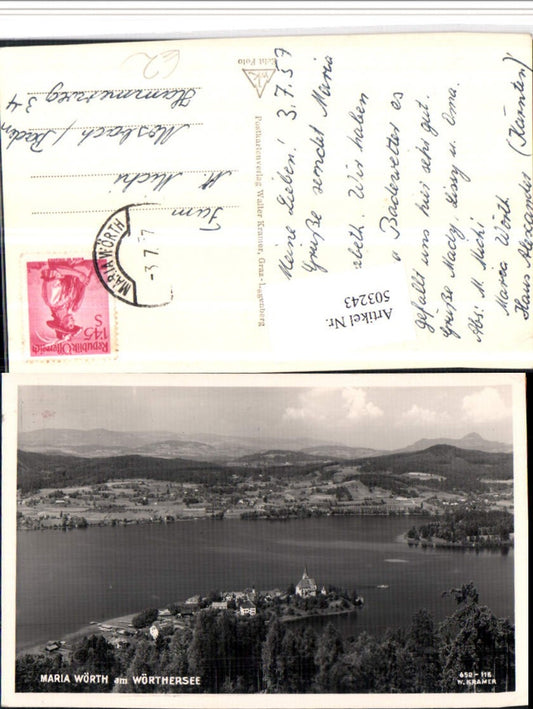 Meine Lieben! 3.7.57
Grüße sendet Maria
Wir haben
Badewetter es
gefällt uns hier sehr gut.
Grüße u. Oma.
Abs: M. Michi
Maria Wörth
Haus Alexander (Kärnten)
Artikel Nr.
503243
Echt Foto
Postkartenverlag Walter Kramer, Graz-Eggenberg
Fam
M. Michi
Mosbach / Baden
Hammerweg 34
MARIA WÖRTH
-3.7.57
Republik Österreich
1.45
S
MARIA WÖRTH am WÖRTHERSEE
650-116
W. KRAMER